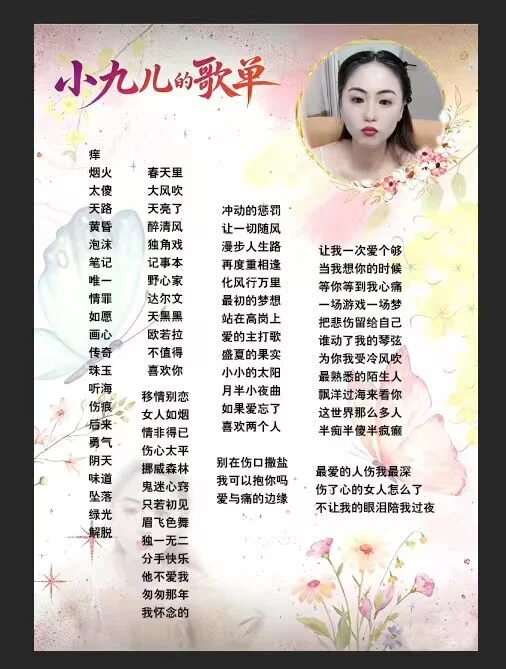 小九儿的歌单
痒
烟火
太傻
天路
黄昏
泡沫
笔记
唯一
情罪
如愿
画心
传奇
珠玉
听海
伤痕
后来
勇气
阴天
味道
坠落
绿光
解脱
春天里
大风吹
天亮了
醉清风
独角戏
记事本
野心家
达尔文
天黑黑
欧若拉
不值得
喜欢你
移情别恋
女人如烟
情非得已
伤心太平
挪威森林
鬼迷心窍
只若初见
眉飞色舞
独一无二
分手快乐
他不爱我
匆匆那年
我怀念的
冲动的惩罚
让一切随风
漫步人生路
再度重相逢
化风行万里
最初的梦想
站在高岗上
爱的主打歌
盛夏的果实
小小的太阳
月半小夜曲
如果爱忘了
喜欢两个人
别在伤口撒盐
我可以抱你吗
爱与痛的边缘
让我一次爱个够
当我想你的时候
等你等到我心痛
一场游戏一场梦
把悲伤留给自己
谁动了我的琴弦
为你我受冷风吹
最熟悉的陌生人
飘洋过海来看你
这世界那么多人
半痴半傻半疯癫
最爱的人伤我最深
伤了心的女人怎么了
不让我的眼泪陪我过夜